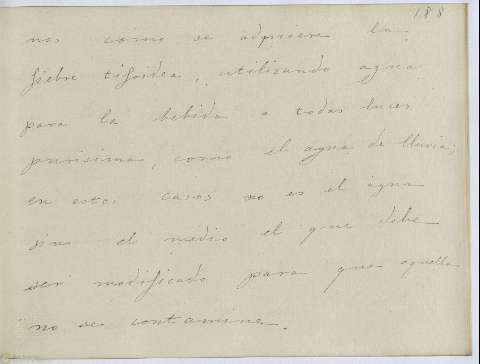 188
nos como se adquiere la
fiebre tifoidea, utilizando agua
para la bebida a todas luces
purisima, como el agua de lluvia;
en estos casos no es el agua
sino el medio el que debe
ser modificado para que aquella
no se contamine.